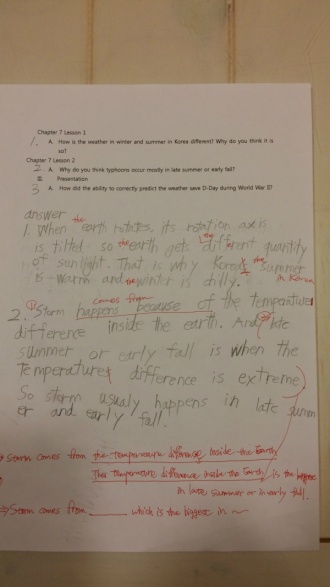 Chapter 7 Lesson 1
1. A. How is the weather in winter and summer in Korea different? Why do you think it is
so?
Chapter 7 Lesson 2
2. A. Why do you think typhoons occur mostly in late summer or early fall?
Presentation
3 A. How did the ability to correctly predict the weather save D-Day during World War II?
answer
1. When the earth rotates, its rotation axis
is tilted so the earth gets different quantity
of sunlight. That is why Korea's summer
is warm and winter is chilly. in Korea
comes from
2. Storm happens because of the temperatures
difference inside the earth. And late
summer or early fall is when the
Temperatures difference is extreme
So storm usualy happens in late summ
er and early fall.
Storm comes from the temperature difference inside the Earth
This temperature difference inside the Earth is the biggest
in late summer or in early fall.
⇒ Storm comes from ______ which is the biggest in ~